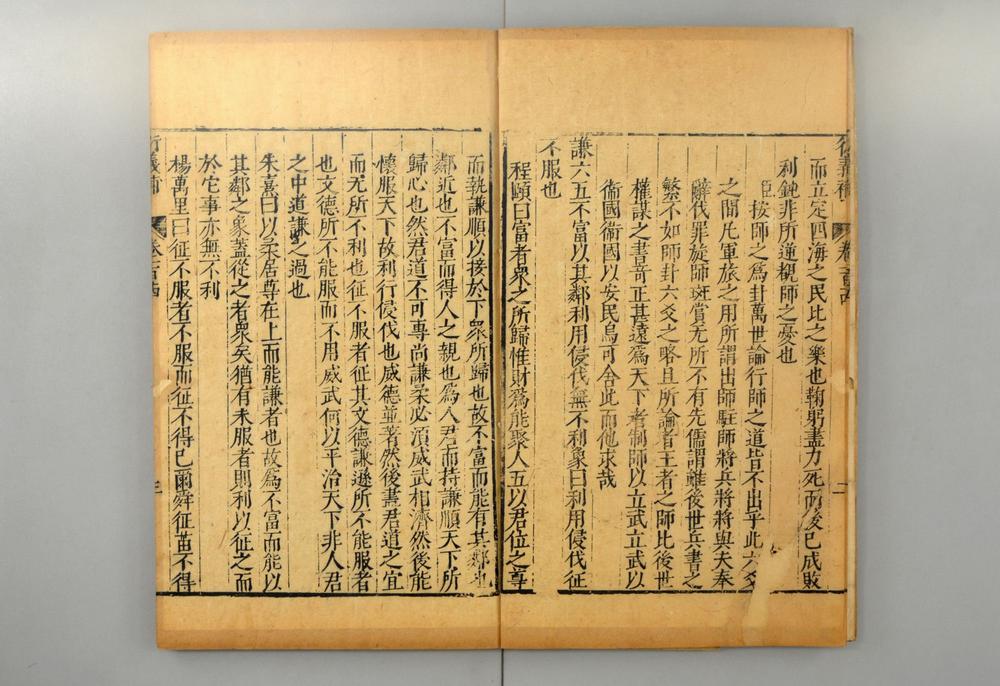 而立定四海之民比之樂也鞠躬盡力死而後已成敗
利鈍非所逆覩師之憂也
臣按師之爲卦萬世論行師之道皆不出乎此六爻
之間凡軍旅之用所謂出師駐師將兵將將與夫奉
辭伐罪旋師班賞无所不有先儒謂雖後世兵書之
繁不如師卦六爻之畧且所論者王者之師比後世
權謀之書奇正甚遠爲天下者制師以立武立武以
衞國衞國以安民烏可舍此而他求哉
謙六五不富以其鄰利用侵伐無不利象曰利用侵伐征
不服也
程頤曰富者衆之所歸惟財爲能聚人五以君位之尊
而執謙順以接於下衆所歸也故不富而能有其鄰也
鄰近也不富而得人之親也爲人君而持謙順天下所
歸心也然君道不可專尚謙柔必須威武相濟然後能
懷服天下故利行侵伐也威德並著然後盡君道之宜
而无所不利也征不服者征其文德謙遜所不能服者
也文德所不能服而不用威武何以平治天下非人君
之中道謙之過也
朱熹曰以柔居尊在上而能謙者也故爲不富而能以
其鄰之象蓋從之者衆矣猶有未服者則利以征之而
於它事亦無不利
楊萬里曰征不服者不服而征不得已爾舜征苗不得
衍義補
卷一百四
三